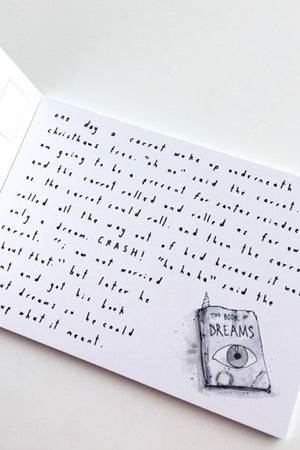 one day a carrot woke up underneath
christmas tree. "oh no" said the carrot
am going to be a present for santas reindee
and the carrot rolled and rolled as far awa
as the carrot could roll. and then the carro
rolled all the way out of bed because it wa
only a dream. CRASH! "ha ha ha" said the
carrot. "i am not worried
but that." but later he
nt and got his book
ut dreams so he could
up what it meant.
THE BOOK OF
DREAMS